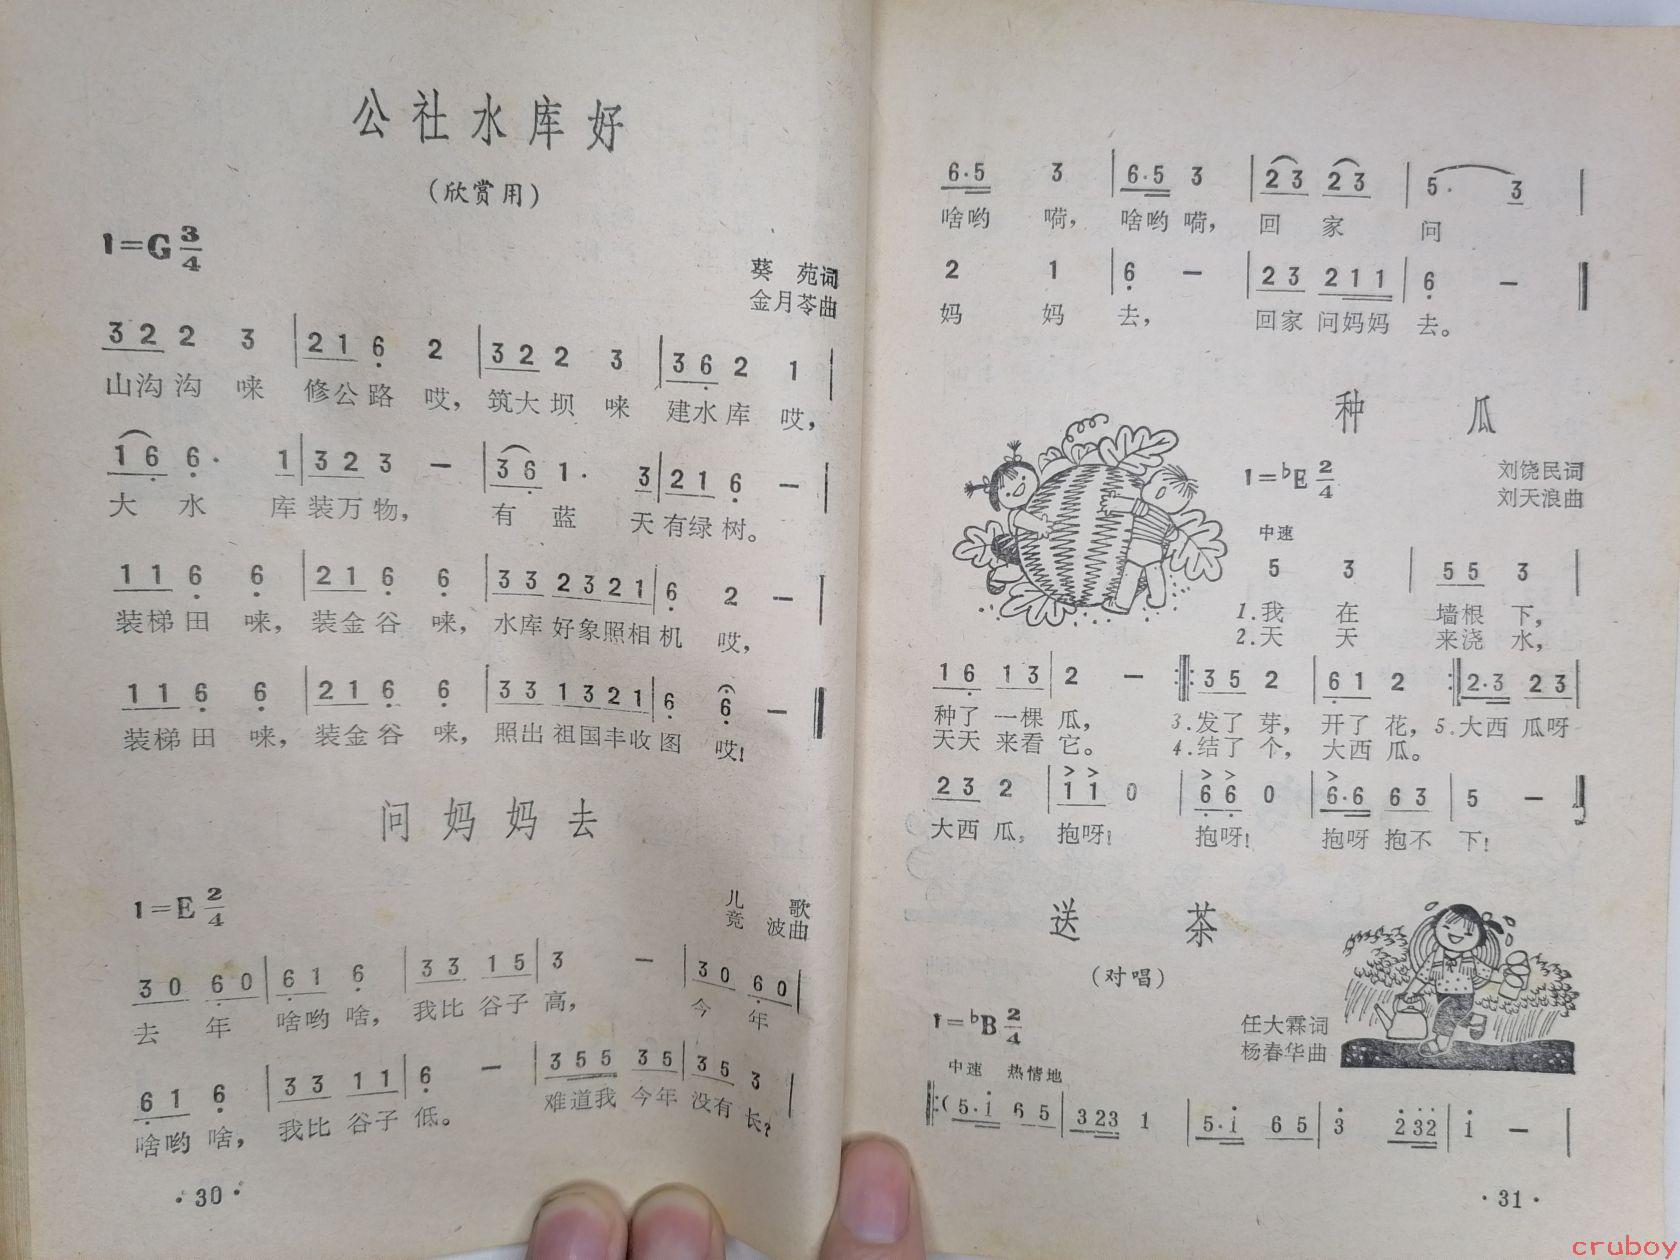 公社水库好
（欣赏用）
1=G 3/4
葵 苑词
金月苓曲
3 2 2 3 | 2 1 6 2 | 3 2 2 3 | 3 6 2 1 |
山沟沟 唻 修公路 哎，筑大坝 唻 建水库 哎，
1 6 6· 1 | 3 2 3 — | 3 6 1· 3 | 2 1 6 — |
大 水 库装万物， 有 蓝 天有绿树。
1 1 6 6 | 2 1 6 6 | 3 3 2 3 2 1 | 6 2 — |
装梯田 唻，装金谷 唻，水库 好象照相机 哎，
1 1 6 6 | 2 1 6 6 | 3 3 1 3 2 1 | 6 6 — ‖
装梯田 唻，装金谷 唻，照出 祖国丰收图 哎！
问妈妈去
1=E 2/4
儿 歌
竞 波曲
3 0 6 0 | 6 1 6 | 3 3 1 5 | 3 — | 3 0 6 0 |
去 年 啥哟 啥，我比 谷子 高， 今 年
6 1 6 | 3 3 1 1 | 6 — | 3 5 5 3 5 | 3 5 3 |
啥哟 啥，我比 谷子 低。 难道我 今年 没有 长？
·30·
6·5 3 | 6·5 3 | 2 3 2 3 | 5· 3 |
啥哟 嗬，啥哟 嗬，回 家 问
2 1 | 6 — | 2 3 2 1 1 | 6 — ‖
妈 妈 去， 回家 问妈妈 去。
种 瓜
1=♭E 2/4
刘饶民词
刘天浪曲
中速
5 3 | 5 5 3 |
1.我 在 墙根 下，
2.天 天 来浇 水，
1 6 1 3 | 2 — ‖: 3 5 2 | 6 1 2 :‖ 2·3 2 3 |
种了 一棵 瓜， 3.发了 芽，开了 花，5.大西 瓜呀
天天 来看 它。 4.结了 个，大西 瓜。
2 3 2 | 1 1 0 | 6 6 0 | 6·6 6 3 | 5 — ‖
大西 瓜，抱呀！ 抱呀！ 抱呀 抱不 下！
送 茶
（对唱）
1=♭B 2/4
任大霖词
杨春华曲
中速 热情地
‖:( 5·i 6 5 | 3 2 3 1 | 5·i 6 5 | 3 2 3 2 | i — |
·31·
cruboy